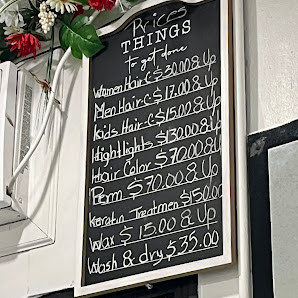 Prices
THINGS
to get done
Women Hair-C $30.00 & Up
Men Hair-C $17.00 & Up
Kids Hair-C $15.00 & Up
Highlights $130.00 & Up
Hair Color $70.00 & Up
Perm $70.00 & Up
Keratin Treatmen $150.00
Wax $15.00 & Up
Wash & dry $35.00